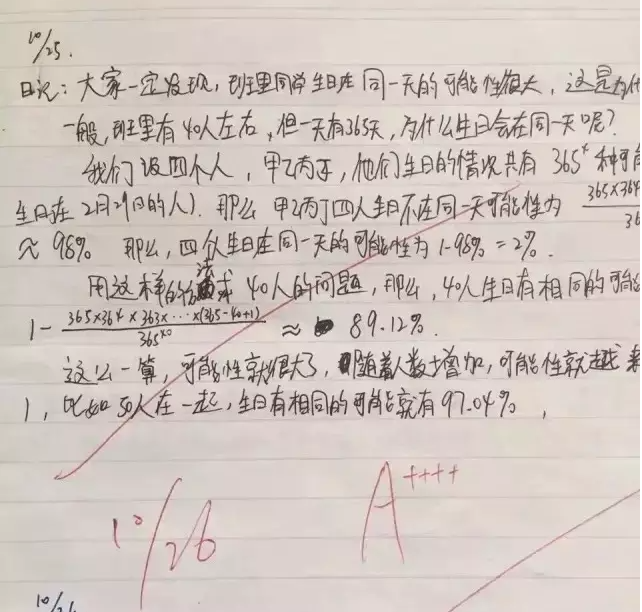 10/25.
日记：大家一定发现，班里同学生日在同一天的可能性很大，这是为什
一般，班里有40人左右，但一天有365天，为什么生日会在同一天呢？
我们设四个人，甲乙丙丁，他们生日的情况共有365⁴种可能
生日在2月29日的人）．那么甲乙丙丁四人生日不在同一天可能性为 365×364 36
≈98% 那么，四人生日在同一天的可能性为1-98%=2%．
用这样的方法求40人的问题，那么，40人生日有相同的可能
1- 365×364×363×…×(365-40+1) 365⁴⁰ ≈ 89.12%．
这么一算，可能性就很大了，随着人数增加，可能性就越来
1，比如50人在一起，生日有相同的可能就有97.04%，
10/26 A++++
10/26